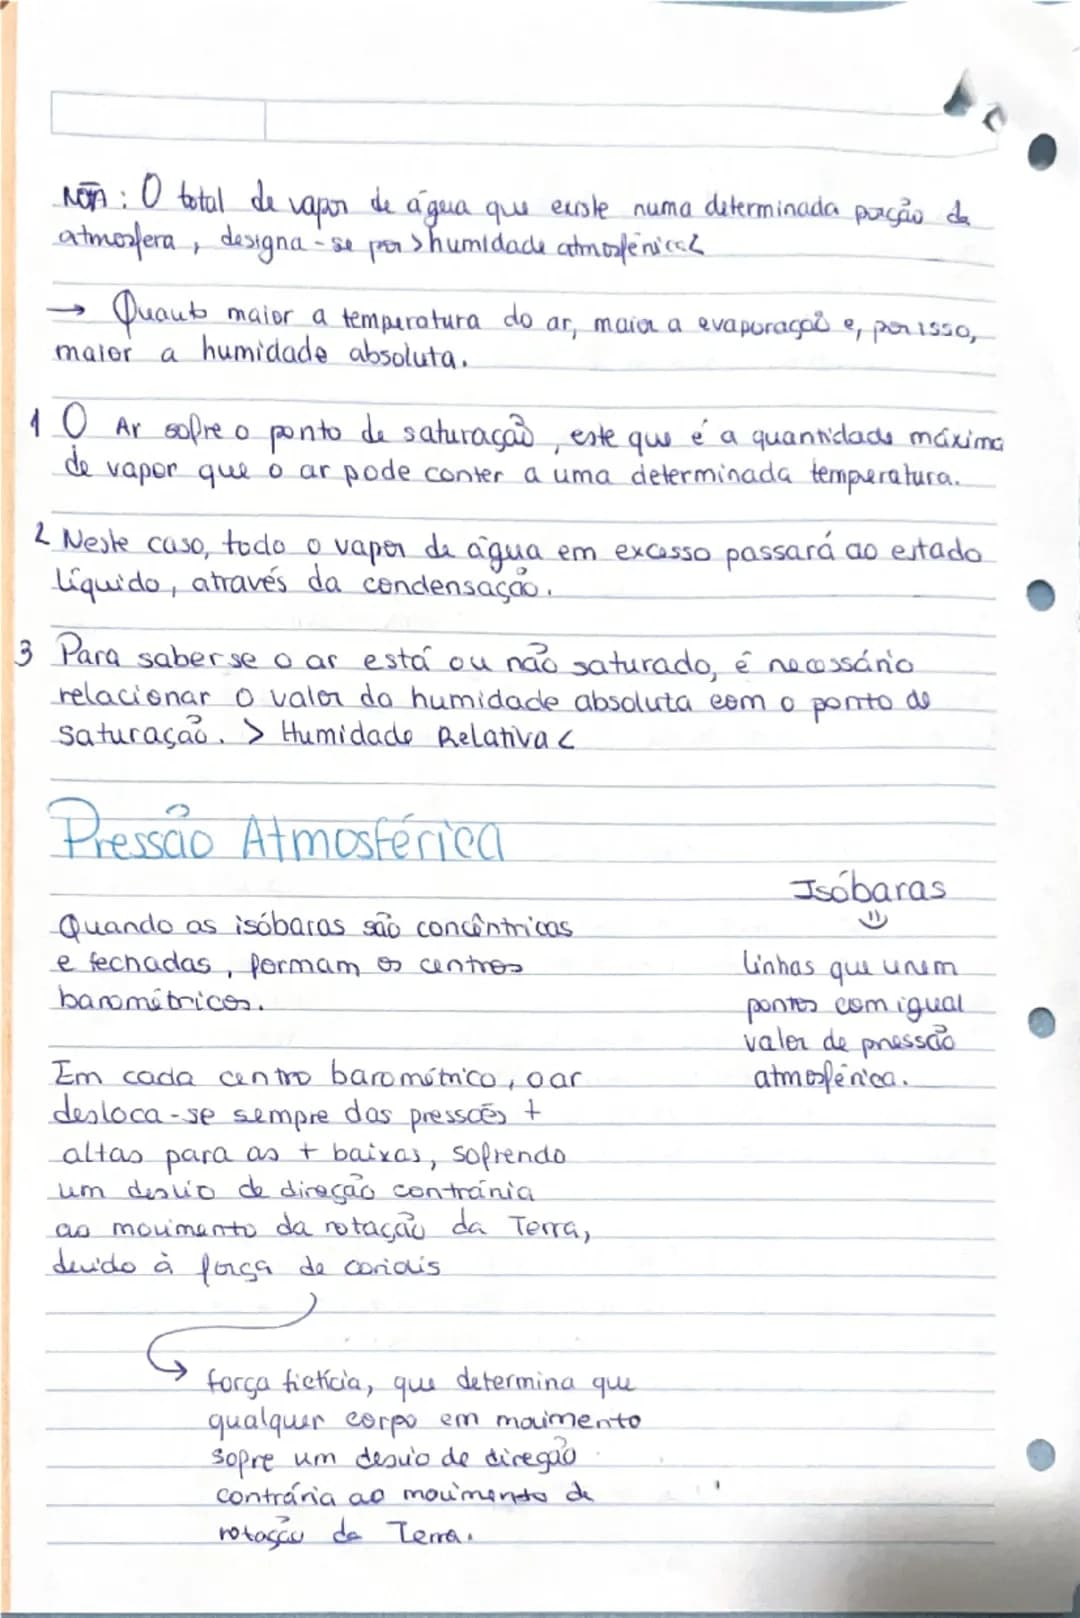 NOTA: O total de vapor de água que existe numa determinada porção da
atmosfera, designa-se por >humidade atmosférica<
→ Quanto maior a temperatura do ar, maior a evaporação e, por isso,
maior a humidade absoluta.
1 O Ar sofre o ponto de saturação, este que é a quantidade máxima
de vapor que o ar pode conter a uma determinada temperatura.
2 Neste caso, todo o vapor de água em excesso passará ao estado
líquido, através da condensação.
3 Para saber se o ar está ou não saturado, é necessário
relacionar o valor da humidade absoluta com o ponto de
saturação. > Humidade Relativa <
Pressão Atmosférica
Quando as isóbaras são concêntricas
e fechadas, formam os centros
barométricos.
Em cada centro barométrico, o ar
desloca-se sempre das pressões +
altas para as + baixas, sofrendo
um desvio de direção contrária
ao movimento da rotação da Terra,
devido à força de coriolis
força fictícia, que determina que
qualquer corpo em movimento
sofre um desvio de direção
contrária ao movimento de
rotação da Terra.
Isóbaras
linhas que unem
pontos com igual
valor de pressão
atmosférica.